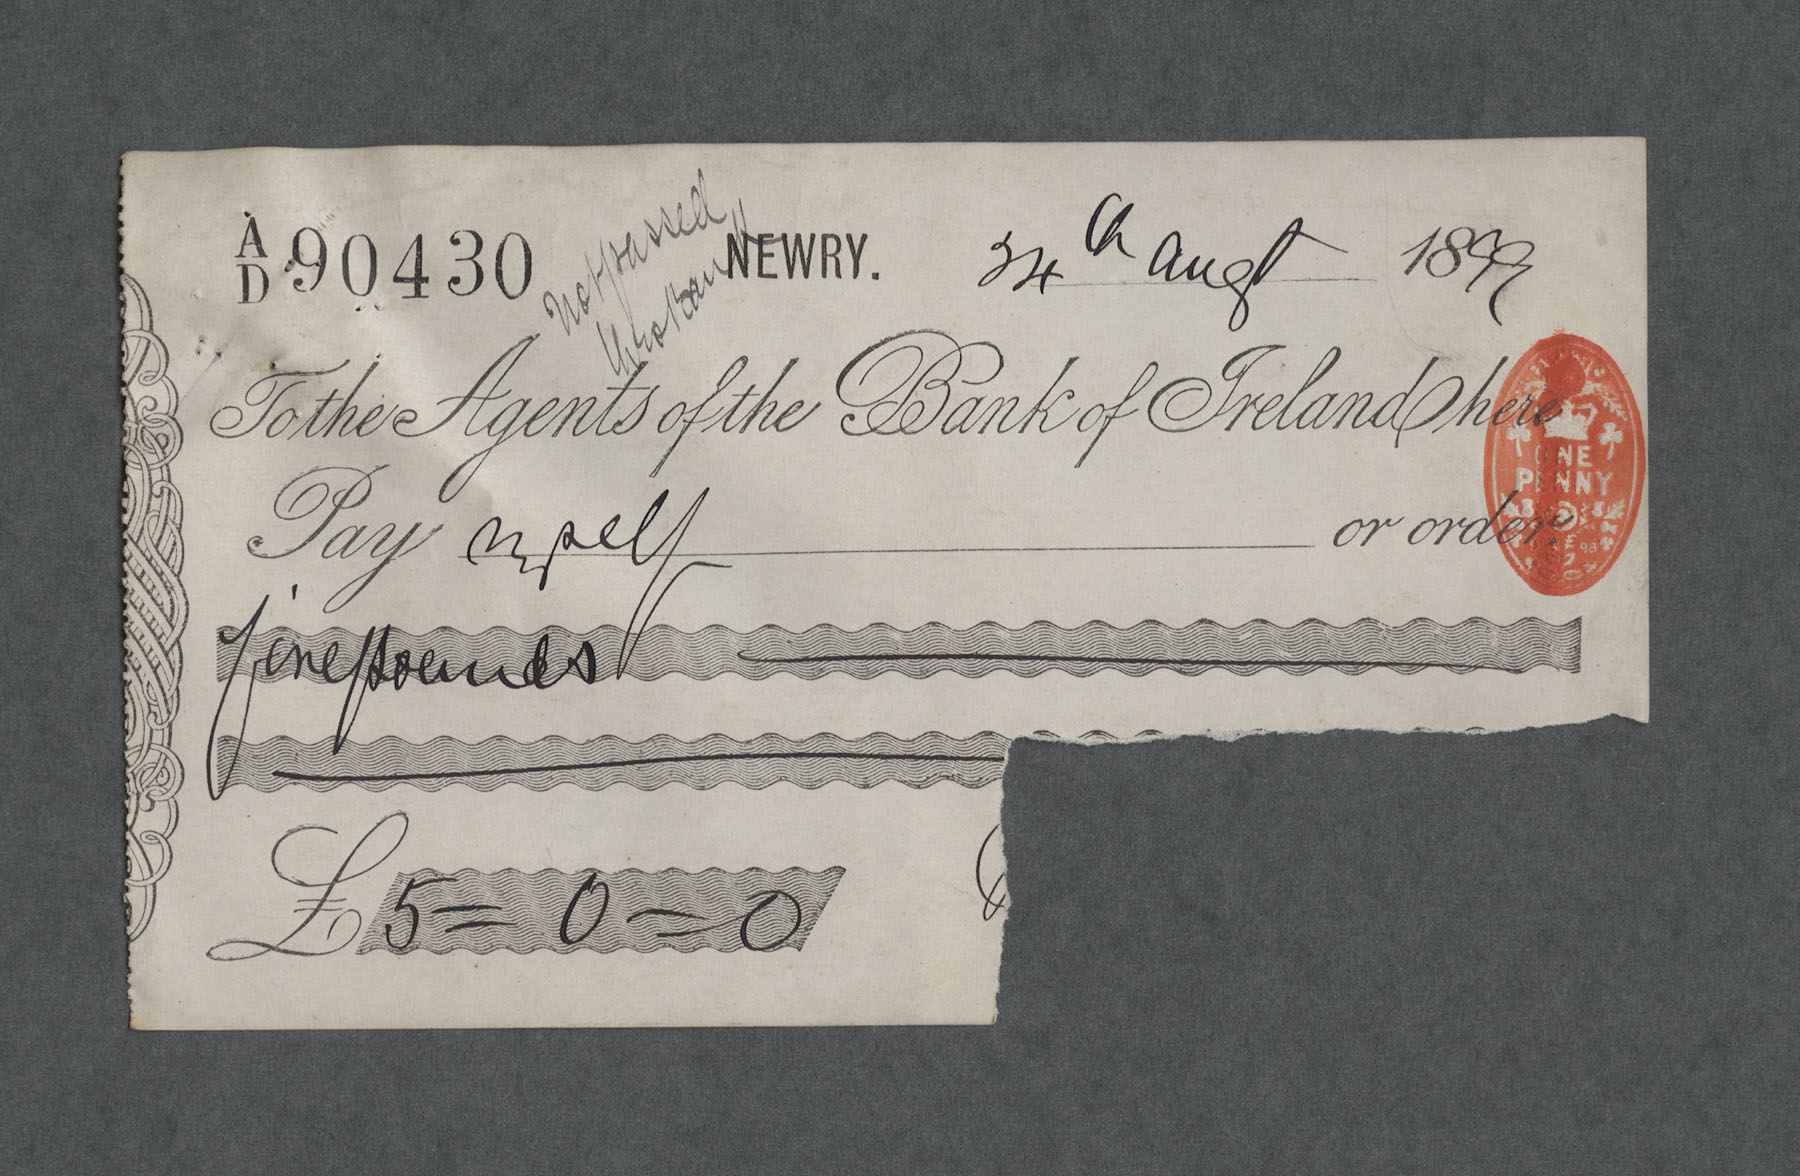 A/D 90430 NEWRY. 24th Augt 1899
Not passed
thro Bank
To the Agents of the Bank of Ireland here
Pay myself or order
ONE
PENNY
five pounds
£5=0=0